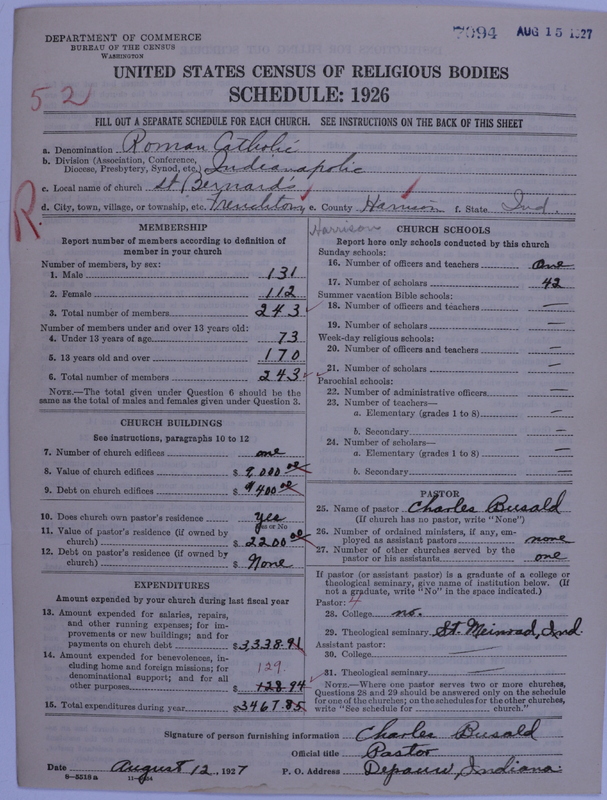 7094 AUG 15 1927
DEPARTMENT OF COMMERCE
BUREAU OF THE CENSUS
WASHINGTON
UNITED STATES CENSUS OF RELIGIOUS BODIES
SCHEDULE: 1926
52
FILL OUT A SEPARATE SCHEDULE FOR EACH CHURCH. SEE INSTRUCTIONS ON THE BACK OF THIS SHEET
a. Denomination Roman Catholic
b. Division (Association, Conference,
Diocese, Presbytery, Synod, etc.) Indianapolis
c. Local name of church St Bernard's
d. City, town, village, or township, etc. Frenchtown e. County Harrison f. State Ind.
R.
Harrison
MEMBERSHIP
Report number of members according to definition of
member in your church
Number of members, by sex:
1. Male 131
2. Female 112
3. Total number of members 243
Number of members under and over 13 years old:
4. Under 13 years of age 73
5. 13 years old and over 170
6. Total number of members 243
NOTE.—The total given under Question 6 should be
the same as the total of males and females given under Question 3.
CHURCH BUILDINGS
See instructions, paragraphs 10 to 12
7. Number of church edifices one
8. Value of church edifices $ 9000 00
9. Debt on church edifices $ 9400 00
10. Does church own pastor's residence yes
Yes or No
11. Value of pastor's residence (if owned by
church) $ 2200 00
12. Debt on pastor's residence (if owned by
church) $ None
EXPENDITURES
Amount expended by your church during last fiscal year
13. Amount expended for salaries, repairs,
and other running expenses; for im-
provements or new buildings; and for
payments on church debt $ 3,338.91
14. Amount expended for benevolences, in-
cluding home and foreign missions; for
denominational support; and for all
other purposes $ 128.94
129.
15. Total expenditures during year $ 3467.85
CHURCH SCHOOLS
Report here only schools conducted by this church
Sunday schools:
16. Number of officers and teachers one
17. Number of scholars 42
Summer vacation Bible schools:
18. Number of officers and teachers —
19. Number of scholars —
Week-day religious schools:
20. Number of officers and teachers —
21. Number of scholars —
Parochial schools:
22. Number of administrative officers —
23. Number of teachers—
a. Elementary (grades 1 to 8) —
b. Secondary —
24. Number of scholars—
a. Elementary (grades 1 to 8) —
b. Secondary —
PASTOR
25. Name of pastor Charles Busald
(If church has no pastor, write "None")
26. Number of ordained ministers, if any, em-
ployed as assistant pastors none
27. Number of other churches served by the
pastor or his assistants one
If pastor (or assistant pastor) is a graduate of a college or
theological seminary, give name of institution below. (If
not a graduate, write "No" in the space indicated.)
Pastor: 4
28. College no.
29. Theological seminary St. Meinrad, Ind.
Assistant pastor:
30. College —
31. Theological seminary —
NOTE.—Where one pastor serves two or more churches,
Questions 28 and 29 should be answered only on the schedule
for one of the churches; on the schedules for the other churches,
write "See schedule for church."
Signature of person furnishing information Charles Busald
Official title Pastor
Date August 12, 1927 P. O. Address Depauw, Indiana.
8-5318a